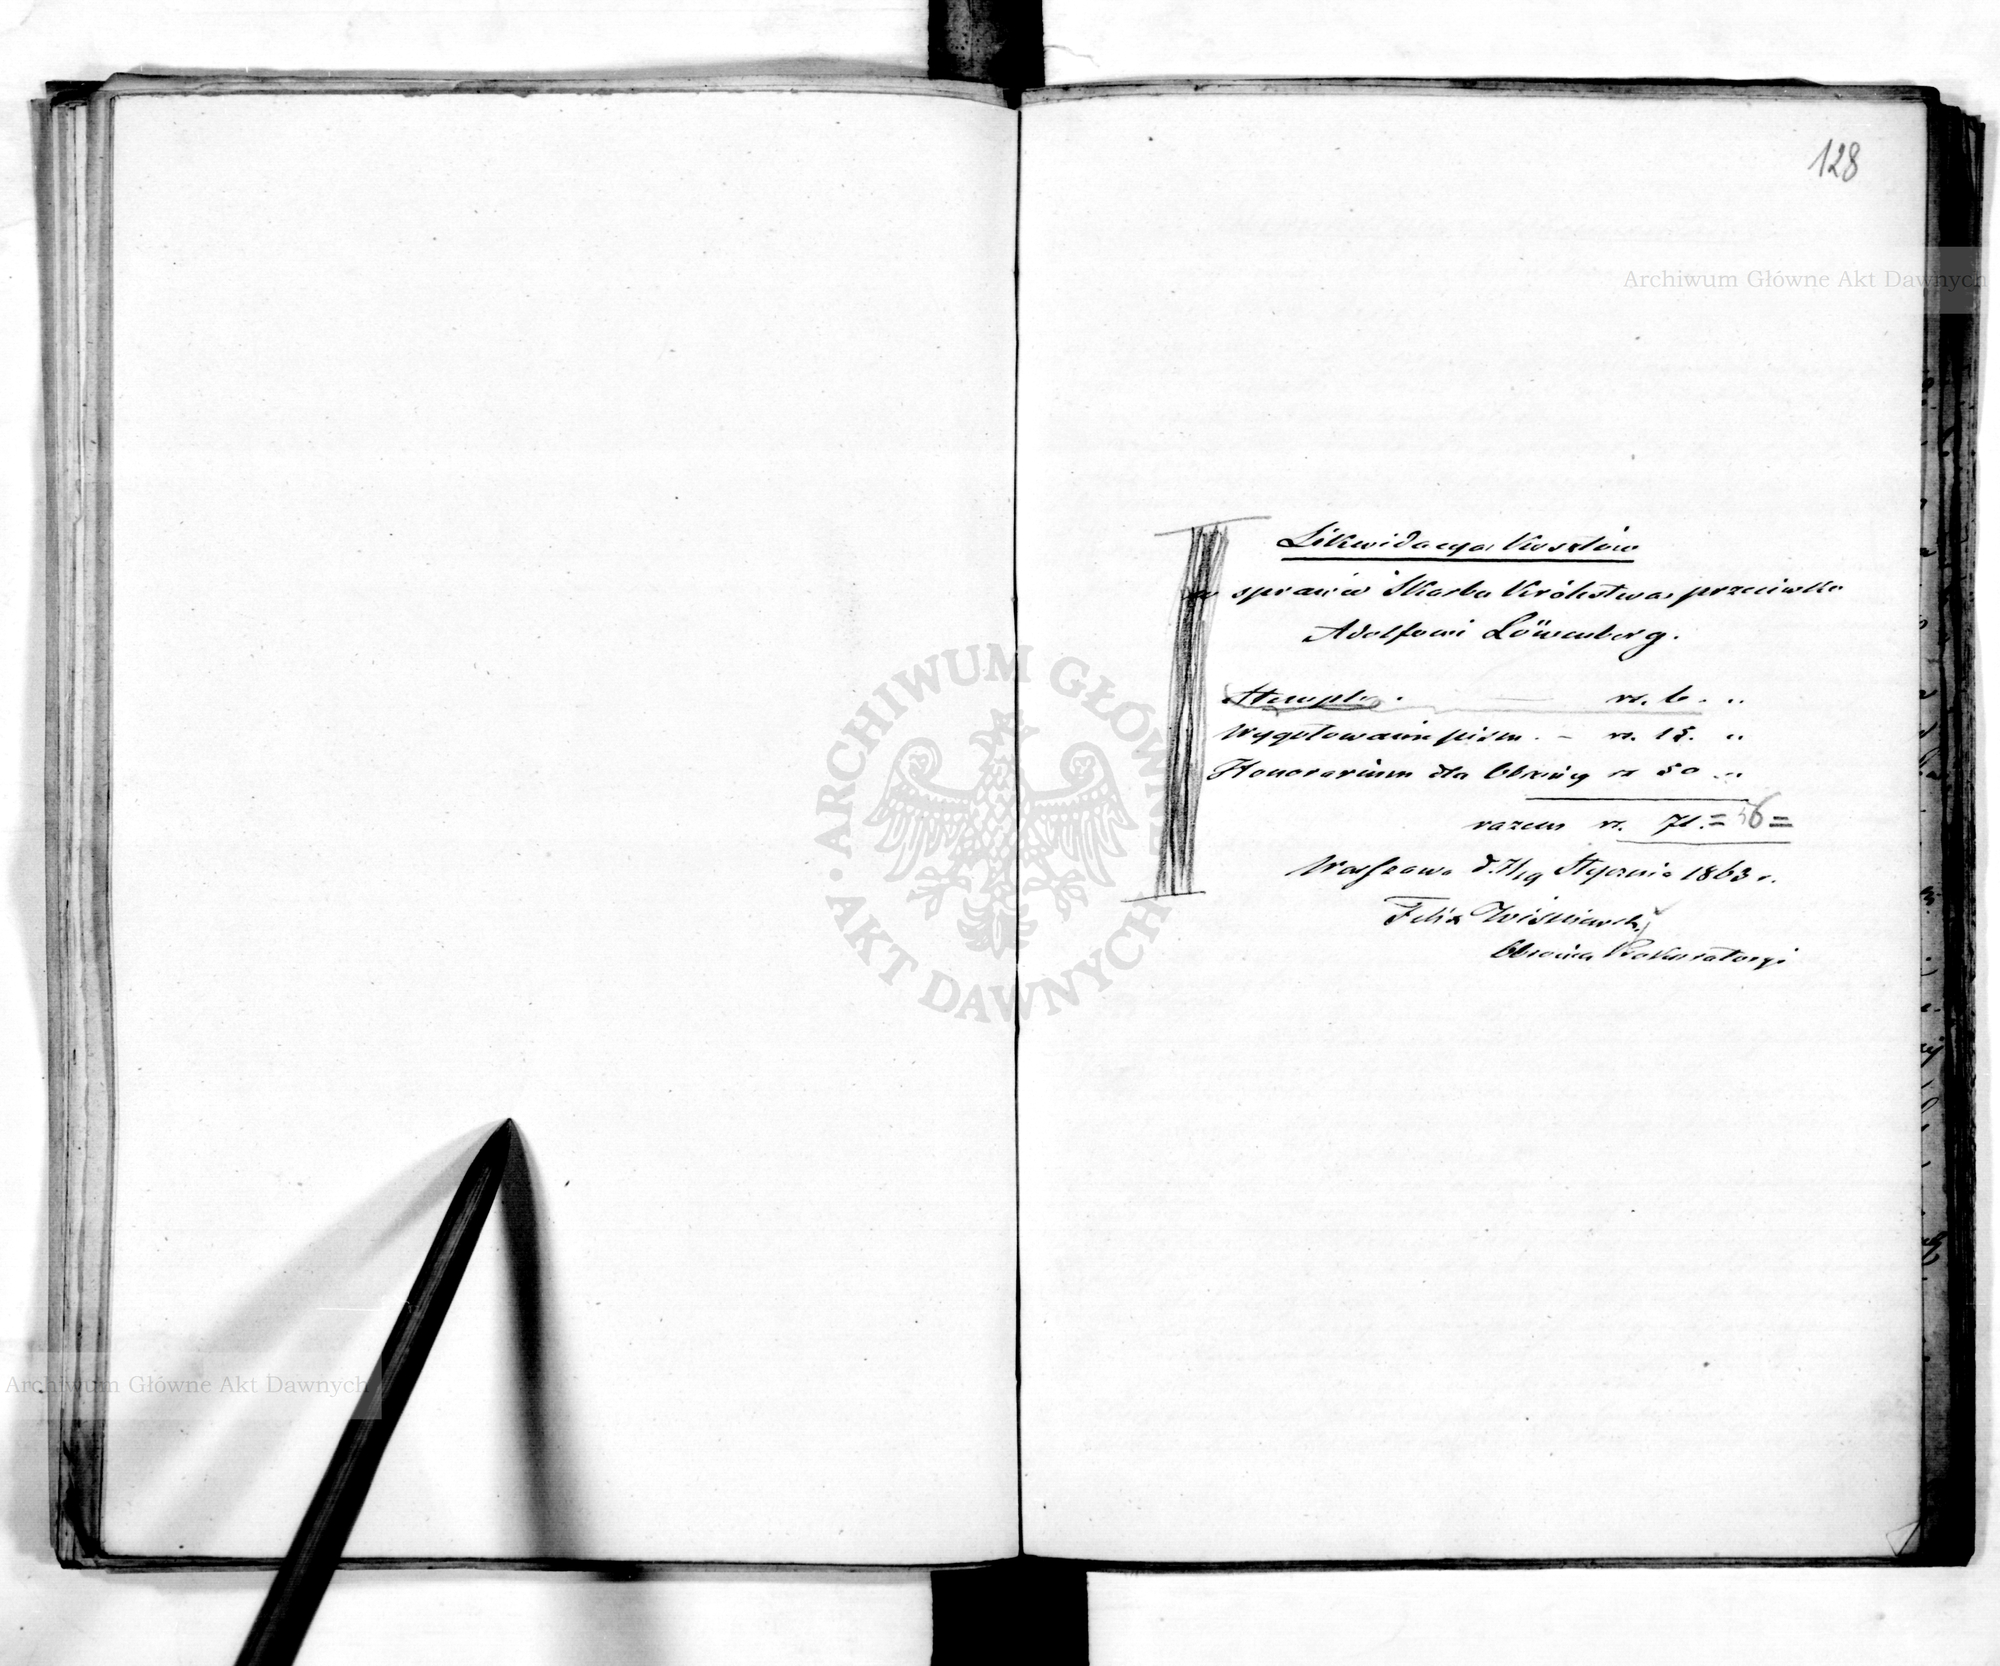 128
Likwidacya kosztów
w sprawie Skarbu Królestwa przeciwko
Adolfowi Löwenberg.
Stempla . — rs. 6. „
Wygotowanie pism . – rs. 15. „
Honorarium dla Obrońcy rs 50 „
razem rs. 71. = 56 =
Warszawa d. 7/19 Stycznia 1863 r.
Felix
Obrońca Prokuratoryi
Archiwum Główne Akt Dawnych
ARCHIWUM GŁÓWNE
AKT DAWNYCH
Archiwum Główne Akt Dawnych